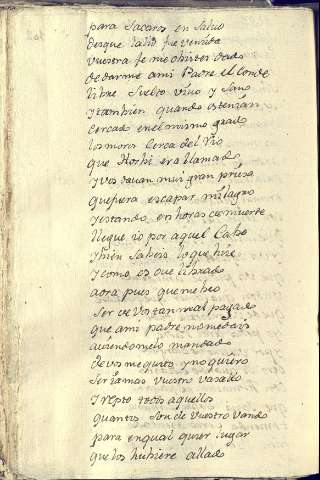 para sacaros en salvo
desque Tallo fue venida
vuestra fe me oluisteis dado
de darme a mi Padre el Conde
libre suelto vivo y sano
y tanbien quando os tenian
cercado en el mismo grado
los moros cerca del Rio
que Horbi era llamado
y vos davan mui gran priesa
que fuera escapar milagro
y estando en horas de muerte
llegue io por aquel Cabo
y bien sabeis lo que hize
y como os ove librado
aora pues que me beo
ser de vos tan mal pagado
que a mi padre no me dais
aviendomelo mandado
de vos me quito y no quiero
ser jamas vuestro vasallo
y repto todos aquellos
quantos son de vuestro vando
para en qual quier lugar
que los hubiere allado